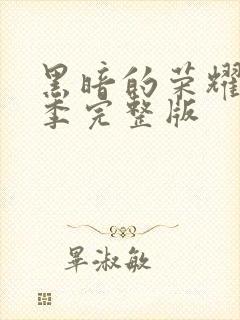 黑暗的荣耀
季完整版
毕淑敏